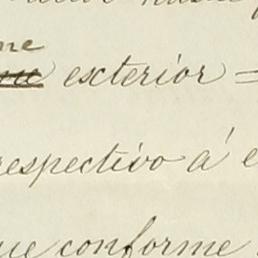 me
exterior =
respectivo á e
que conforme